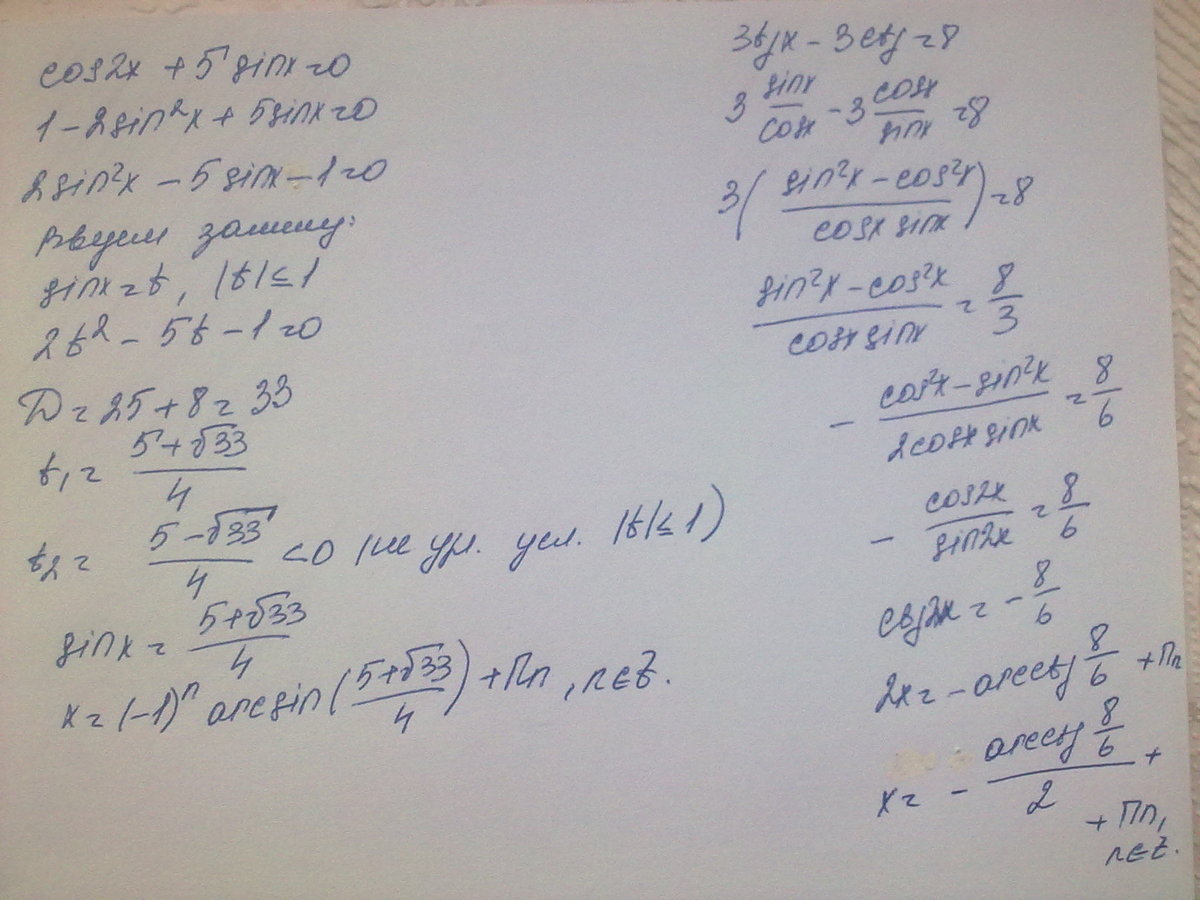 cos2x + 5 sinx = 0
1 - 2sin²x + 5sinx = 0
2sin²x - 5 sinx - 1 = 0
Введем замену:
sinx = t, |t| ≤ 1
2t² - 5t - 1 = 0
D = 25 + 8 = 33
t₁ = (5 + √33)/4
t₂ = (5 - √33)/4 < 0 (не уд. усл. |t| ≤ 1)
sinx = (5 + √33)/4
x = (-1)ⁿ arcsin((5 + √33)/4) + Πn, n ∈ Z.
3tgx - 3ctg = 8
3 sinx/cosx - 3 cosx/sinx = 8
3((sin²x - cos²x)/(cosx sinx)) = 8
(sin²x - cos²x)/(cosx sinx) = 8/3
- (cos²x - sin²x)/(2cosx sinx) = 8/6
- cos2x/sin2x = 8/6
ctg2x = - 8/6
2x = - arcctg 8/6 + Πn
x = - (arcctg 8/6)/2 +
+ Πn,
n ∈ Z.